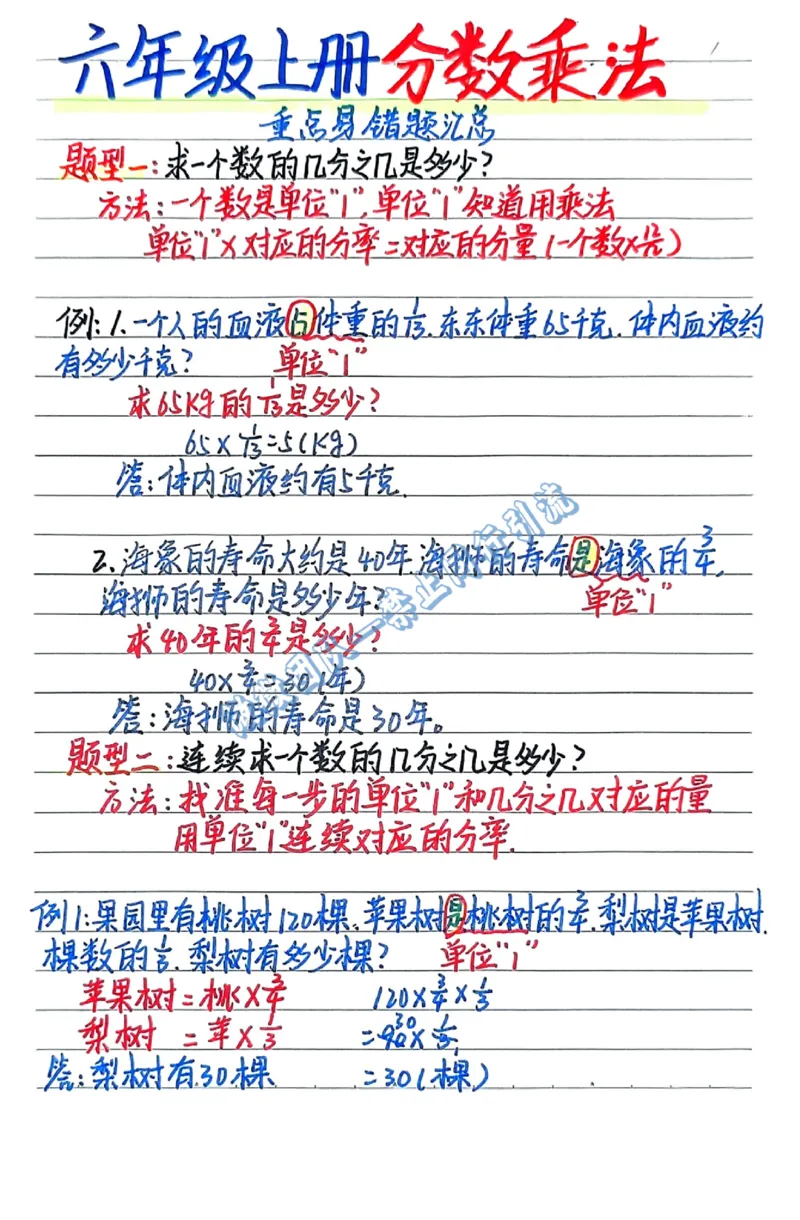 六年级上册分数乘法
重点易错题汇总
题型一:求一个数的几分之几是多少?
方法:一个数是单位"1",单位"1"知道用乘法
单位"1"×对应的分率=对应的分量(一个数×几/几)
例:1.一个人的血液占体重的1/13.东东体重65千克.体内血液约
有多少千克? 单位"1"
求65Kg的1/13是多少?
65×1/13=5(Kg)
答:体内血液约有5千克.
2.海象的寿命大约是40年.海狮的寿命是海象的3/4,
海狮的寿命是多少年? 单位"1"
求40年的3/4是多少?
40×3/4=30(年)
答:海狮的寿命是30年。
题型二:连续求一个数的几分之几是多少?
方法:找准每一步的单位"1"和几分之几对应的量
用单位"1"连续对应的分率.
例1:果园里有桃树120棵、苹果树是桃树的3/4.梨树是苹果树
棵数的1/3.梨树有多少棵? 单位"1"
苹果树=桃×3/4 120×3/4×1/3
梨树 =苹×1/3 =90×1/3
答:梨树有30棵 =30(棵)
禁止同行引流